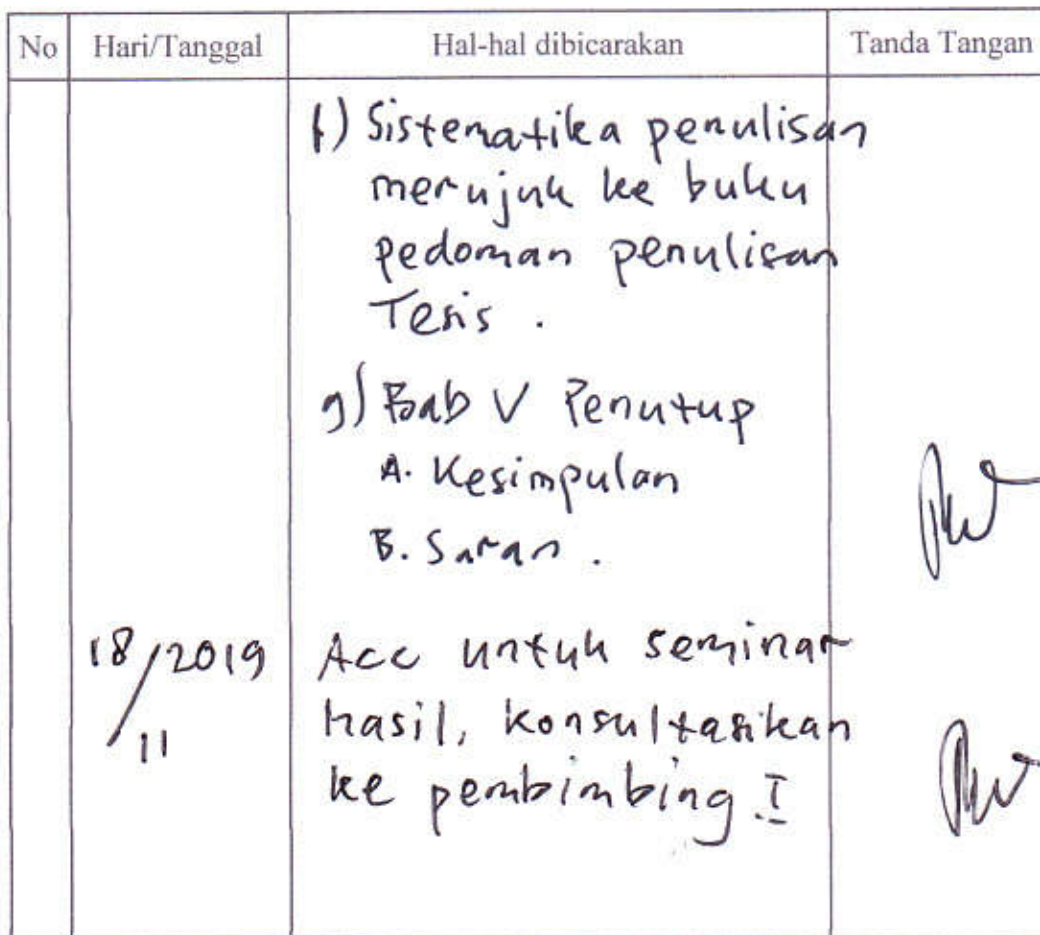 No Hari/Tanggal Hal-hal dibicarakan Tanda Tangan
f) Sistematika penulisan
merujuk ke buku
pedoman penulisan
Tesis .
g) Bab V Penutup
A. Kesimpulan
B. Saran .
18/11 2019 Acc untuk seminar
hasil, konsultasikan
ke pembimbing I